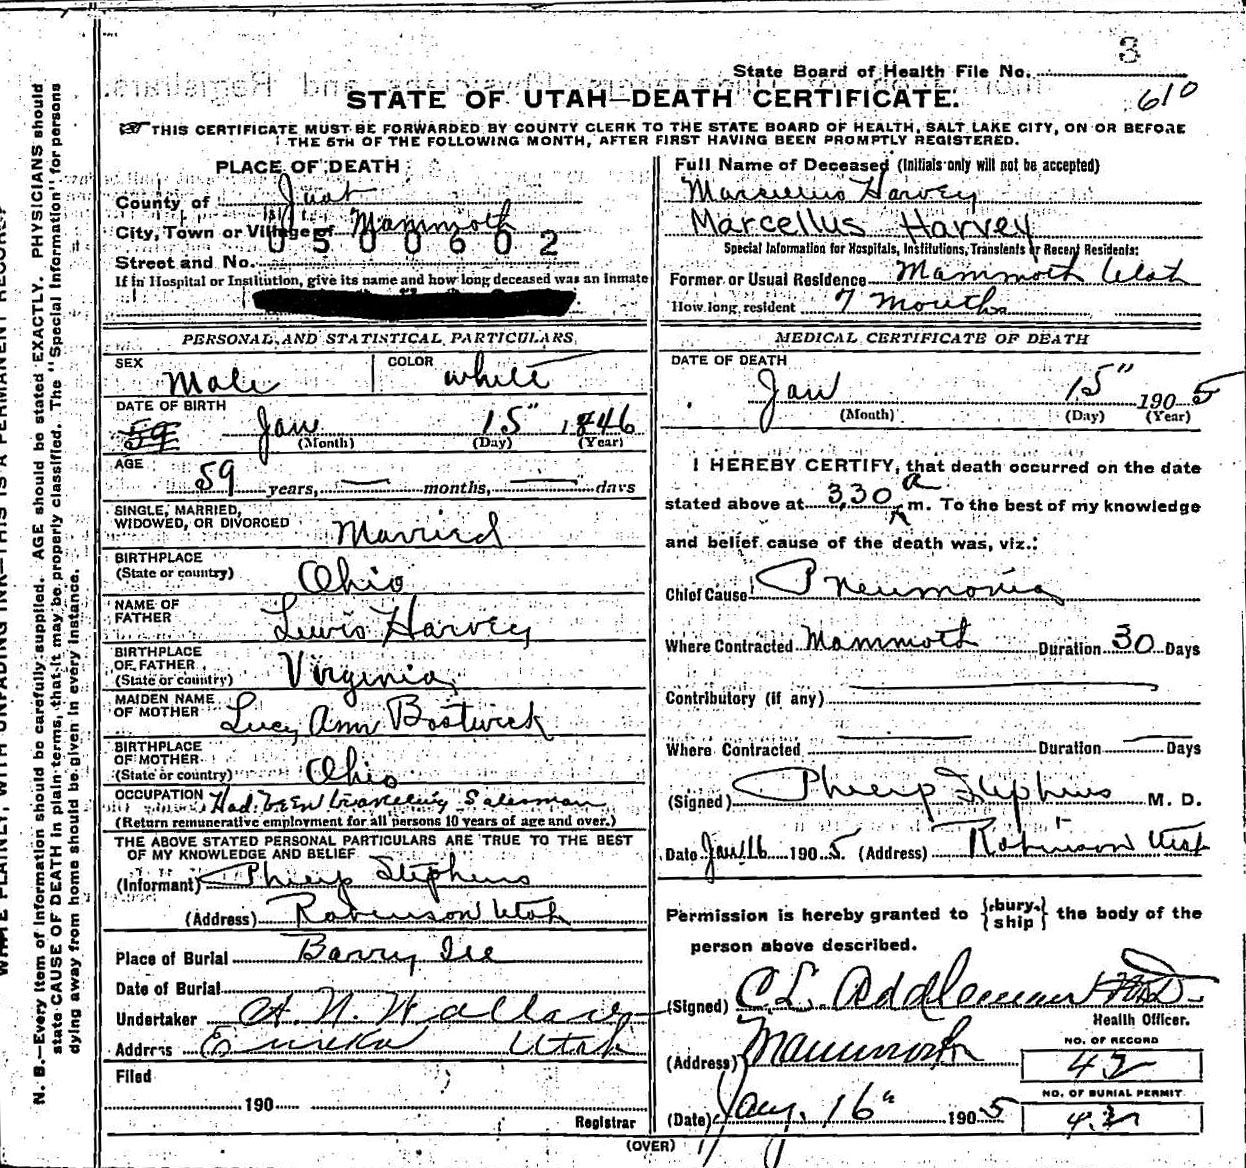 3
State Board of Health File No.
610
STATE OF UTAH—DEATH CERTIFICATE.
THIS CERTIFICATE MUST BE FORWARDED BY COUNTY CLERK TO THE STATE BOARD OF HEALTH, SALT LAKE CITY, ON OR BEFORE
THE 5TH OF THE FOLLOWING MONTH, AFTER FIRST HAVING BEEN PROMPTLY REGISTERED.
PLACE OF DEATH
County of Juab
City, Town or Village of Mammoth
0500602
Street and No.
If in Hospital or Institution, give its name and how long deceased was an inmate
Full Name of Deceased (Initials only will not be accepted)
Marcellus Harvey
Marcellus Harvey
Special Information for Hospitals, Institutions, Transients or Recent Residents:
Former or Usual Residence Mammoth Utah
How long resident 7 Months
PERSONAL AND STATISTICAL PARTICULARS
SEX Male COLOR white
DATE OF BIRTH
59 Jan 15" 1846
(Month) (Day) (Year)
AGE
59 years, — months, — days
SINGLE, MARRIED,
WIDOWED, OR DIVORCED Married
BIRTHPLACE
(State or country) Ohio
NAME OF
FATHER Lewis Harvey
BIRTHPLACE
OF FATHER
(State or country) Virginia
MAIDEN NAME
OF MOTHER Lucy Ann Bostwick
BIRTHPLACE
OF MOTHER
(State or country) Ohio
OCCUPATION Had been traveling Salesman
(Return remunerative employment for all persons 10 years of age and over.)
THE ABOVE STATED PERSONAL PARTICULARS ARE TRUE TO THE BEST
OF MY KNOWLEDGE AND BELIEF
(Informant) Philip Stephens
(Address) Robinson Utah
Place of Burial Barry Ill
Date of Burial
Undertaker A. N. Wallace
Address Eureka Utah
Filed
190
Registrar
MEDICAL CERTIFICATE OF DEATH
DATE OF DEATH
Jan 15" 1905
(Month) (Day) (Year)
I HEREBY CERTIFY, that death occurred on the date
stated above at 3.30 a m. To the best of my knowledge
and belief cause of the death was, viz.:
Chief Cause Pneumonia
Where Contracted Mammoth Duration 30 Days
Contributory (if any) —
Where Contracted — Duration — Days
(Signed) Philip Stephens M. D.
Date Jan 16 1905. (Address) Robinson Utah
Permission is hereby granted to {bury. ship} the body of the
person above described.
(Signed) C. L. Addleman
Health Officer.
(Address) Mammoth
NO. OF RECORD
42
NO. OF BURIAL PERMIT
42
(Date) Jany. 16" 1905
(OVER)
N. B.—Every item of information should be carefully supplied. AGE should be stated EXACTLY. PHYSICIANS should
state CAUSE OF DEATH in plain terms, that it may be properly classified. The "Special Information" for persons
dying away from home should be given in every instance.